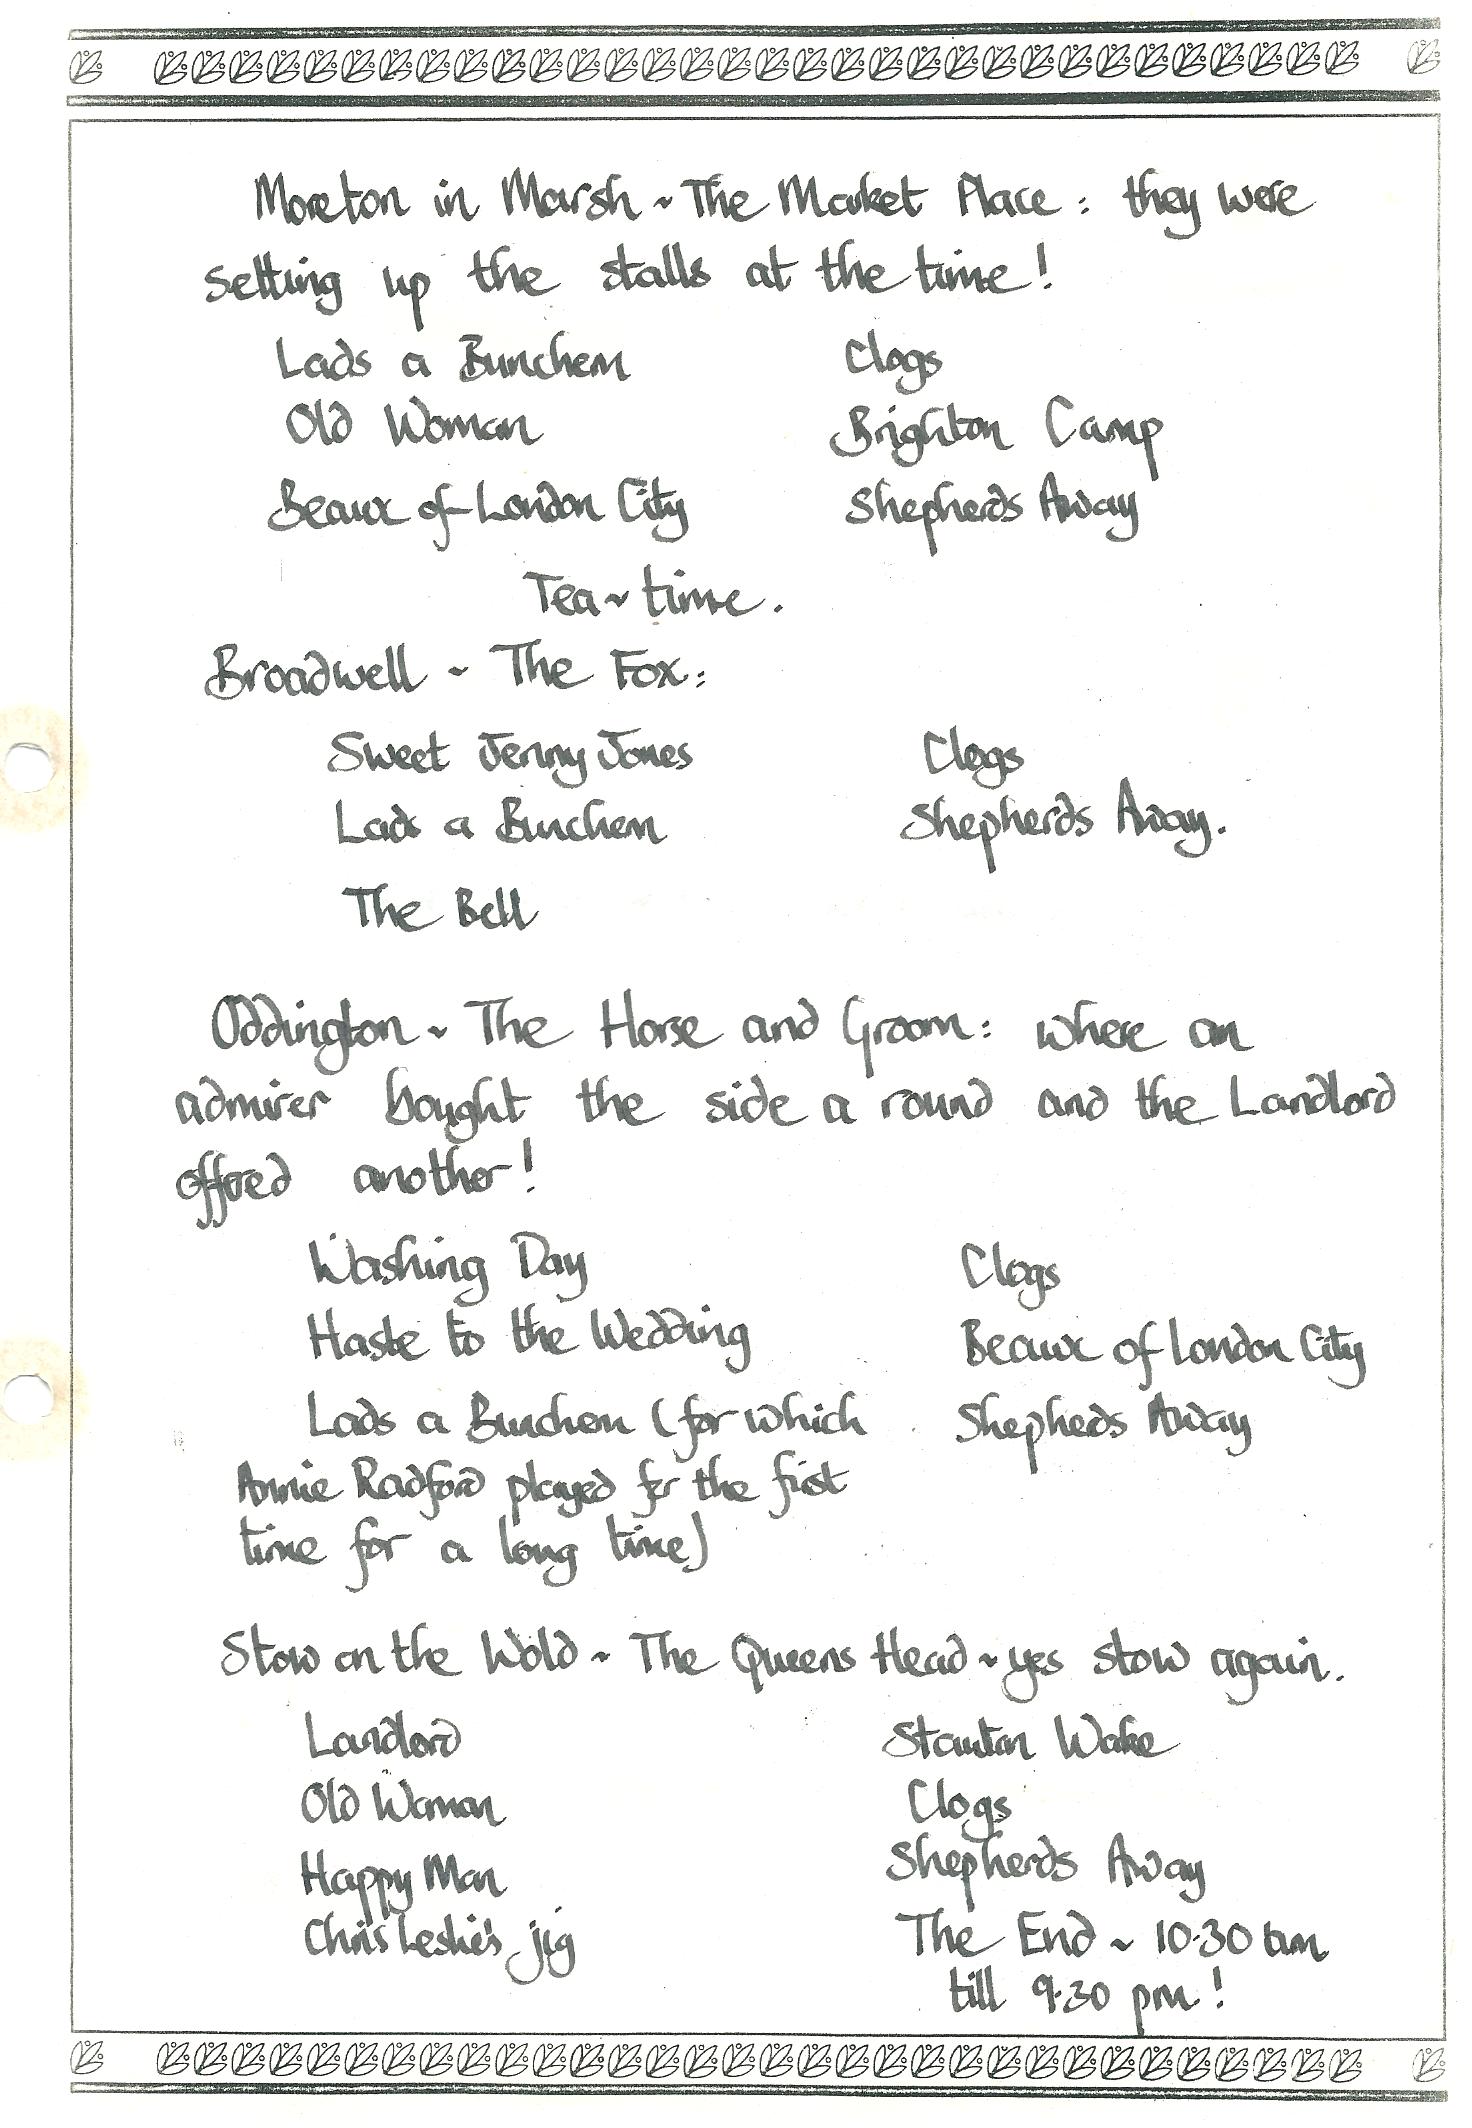 Moreton in Marsh ~ The Market Place : they were
setting up the stalls at the time!
Lads a Bunchem Clogs
Old Woman Brighton Camp
Beaux of London City Shepherds Away
Tea ~ time.
Broadwell ~ The Fox :
Sweet Jenny Jones Clogs
Lads a Bunchem Shepherds Away.
The Bell
Oddington ~ The Horse and Groom : where an
admirer bought the side a round and the Landlord
offered another!
Washing Day Clogs
Haste to the Wedding Beaux of London City
Lads a Bunchem (for which Shepherds Away
Annie Radford played for the first
time for a long time)
Stow on the Wold ~ The Queens Head ~ yes stow again.
Landlord Staunton Wake
Old Woman Clogs
Happy Man Shepherds Away
Chris Leslie's jig The End ~ 10.30 am
till 9.30 pm!